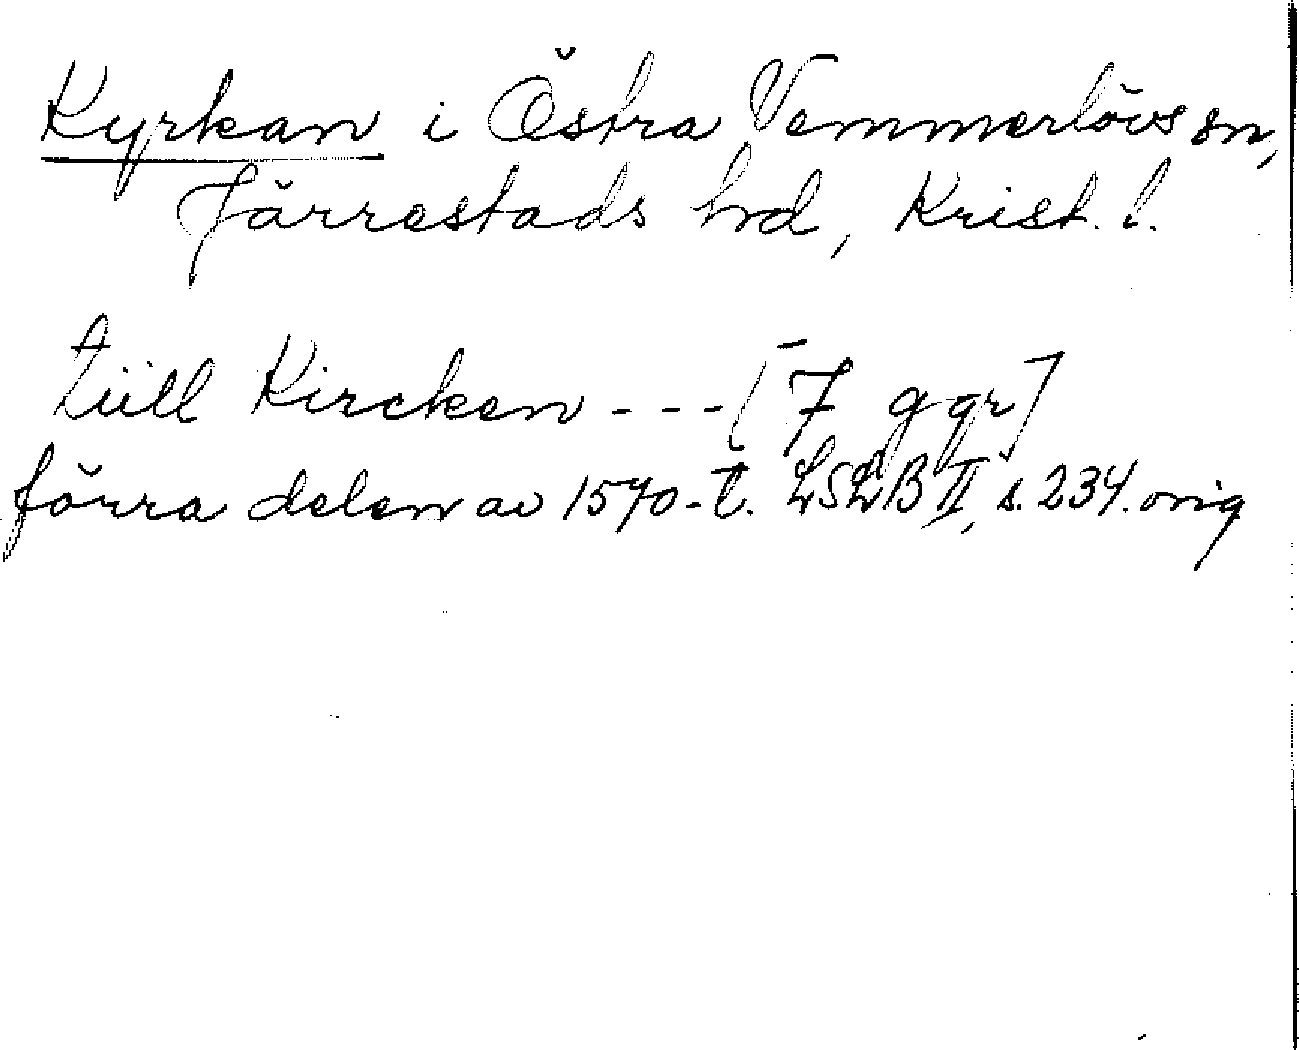 Kyrkan i Östra Vemmerlövs sn,
Järrestads hd, Krist. l.
tiill Kircken - - - [7 ggr]
förra delen av 1570-t. LSLB II, s. 234. orig